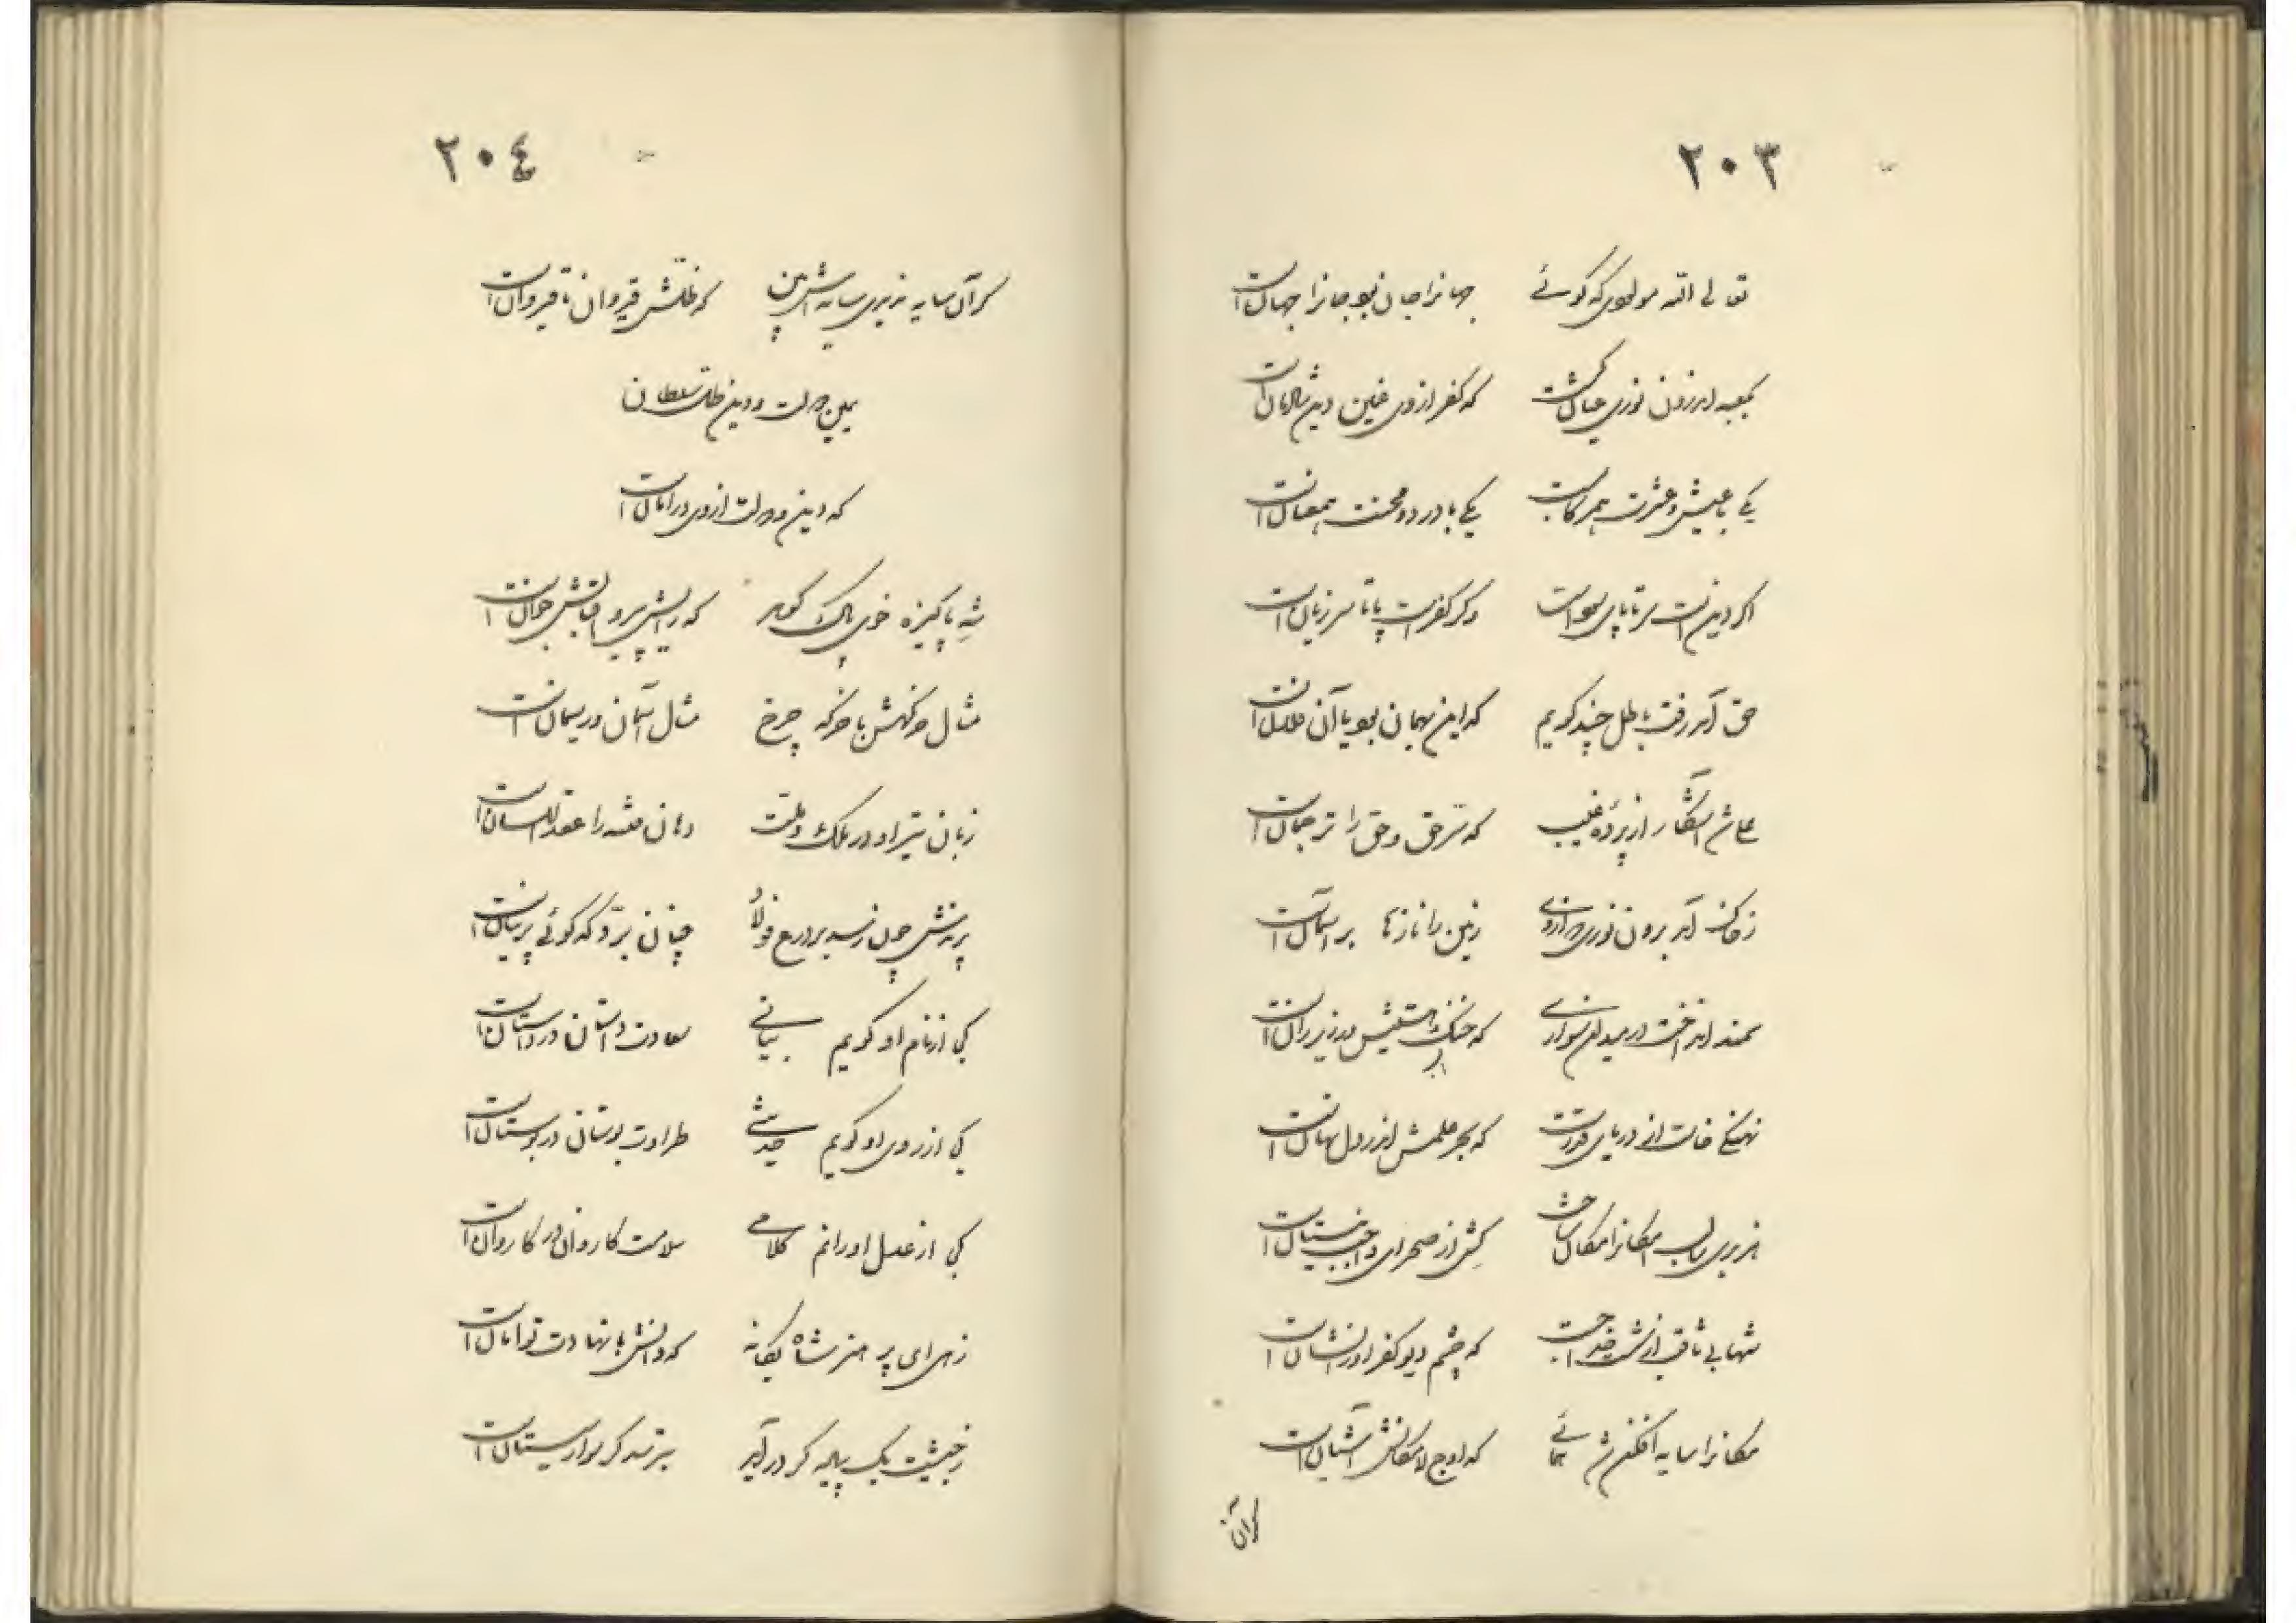 ٢٠٣
تعالی الله مولودی که گوئی جهانرا جان نبود جانرا جهانست
بکعبه اندرون نوری عیان گشت که کفر از وی غمین دین شادمانست
یکی با عیش و عشرت همرکابست یکی با درد و محنت همعنانست
اگر دینست سر تا پای سود است وگر کفرست پا تا سر زیانست
حق آمد رفت باطل چند گویم که این بهمان بود یا آن فلانست
عیان شد آشکار از پرده غیب که سر حق و حق را ترجمانست
ز خاک آمد برون نوری کز آنروی زمین را نازها بر آسمانست
سمند انداخت در میدان سواری که خنگ در زیر رانست
نهنگی خاست از دریای قدرت که بحر علمش اندر دل نهانست
هژبری امکانرا امکان ساخت کش از صحرای واجب نیستانست
شهابی ثاقب از که چشم دیو کفر او را نشانست
مکانرا سایه افکن شد همائی که اوج لامکانش آشیانست
گر آن
٢٠٤
گر آن سایه نزیری سایه اش بین که ظلش قیروان تا قیروانست
یمین دولت و دین ظل سلطان
که دین و دولت از وی در امانست
شه پاکیزه خوی پاک گوهر که رایش پیر و اقبالش جوانست
مثال خرگهش با خرگه چرخ مثال آسمان و ریسمانست
زبان تیر او در ملک و ملت دهان فتنه را عقد اللسانست
پرندش چون رسد بر درع فولاد چنان برد که گوئی پرنیانست
کی از نام او گویم بیانی سعادت داستان در داستانست
کی از روی او گویم حدیثی طراوت بوستان در بوستانست
کی از عدل او رانم کلامی سلامت کاروان در کاروانست
زهی رای پر هنر شاه یگانه که دانش با نهادت توامانست
ز جیشت یک پیاده گر در آید بترسد گر سوار سیستانست